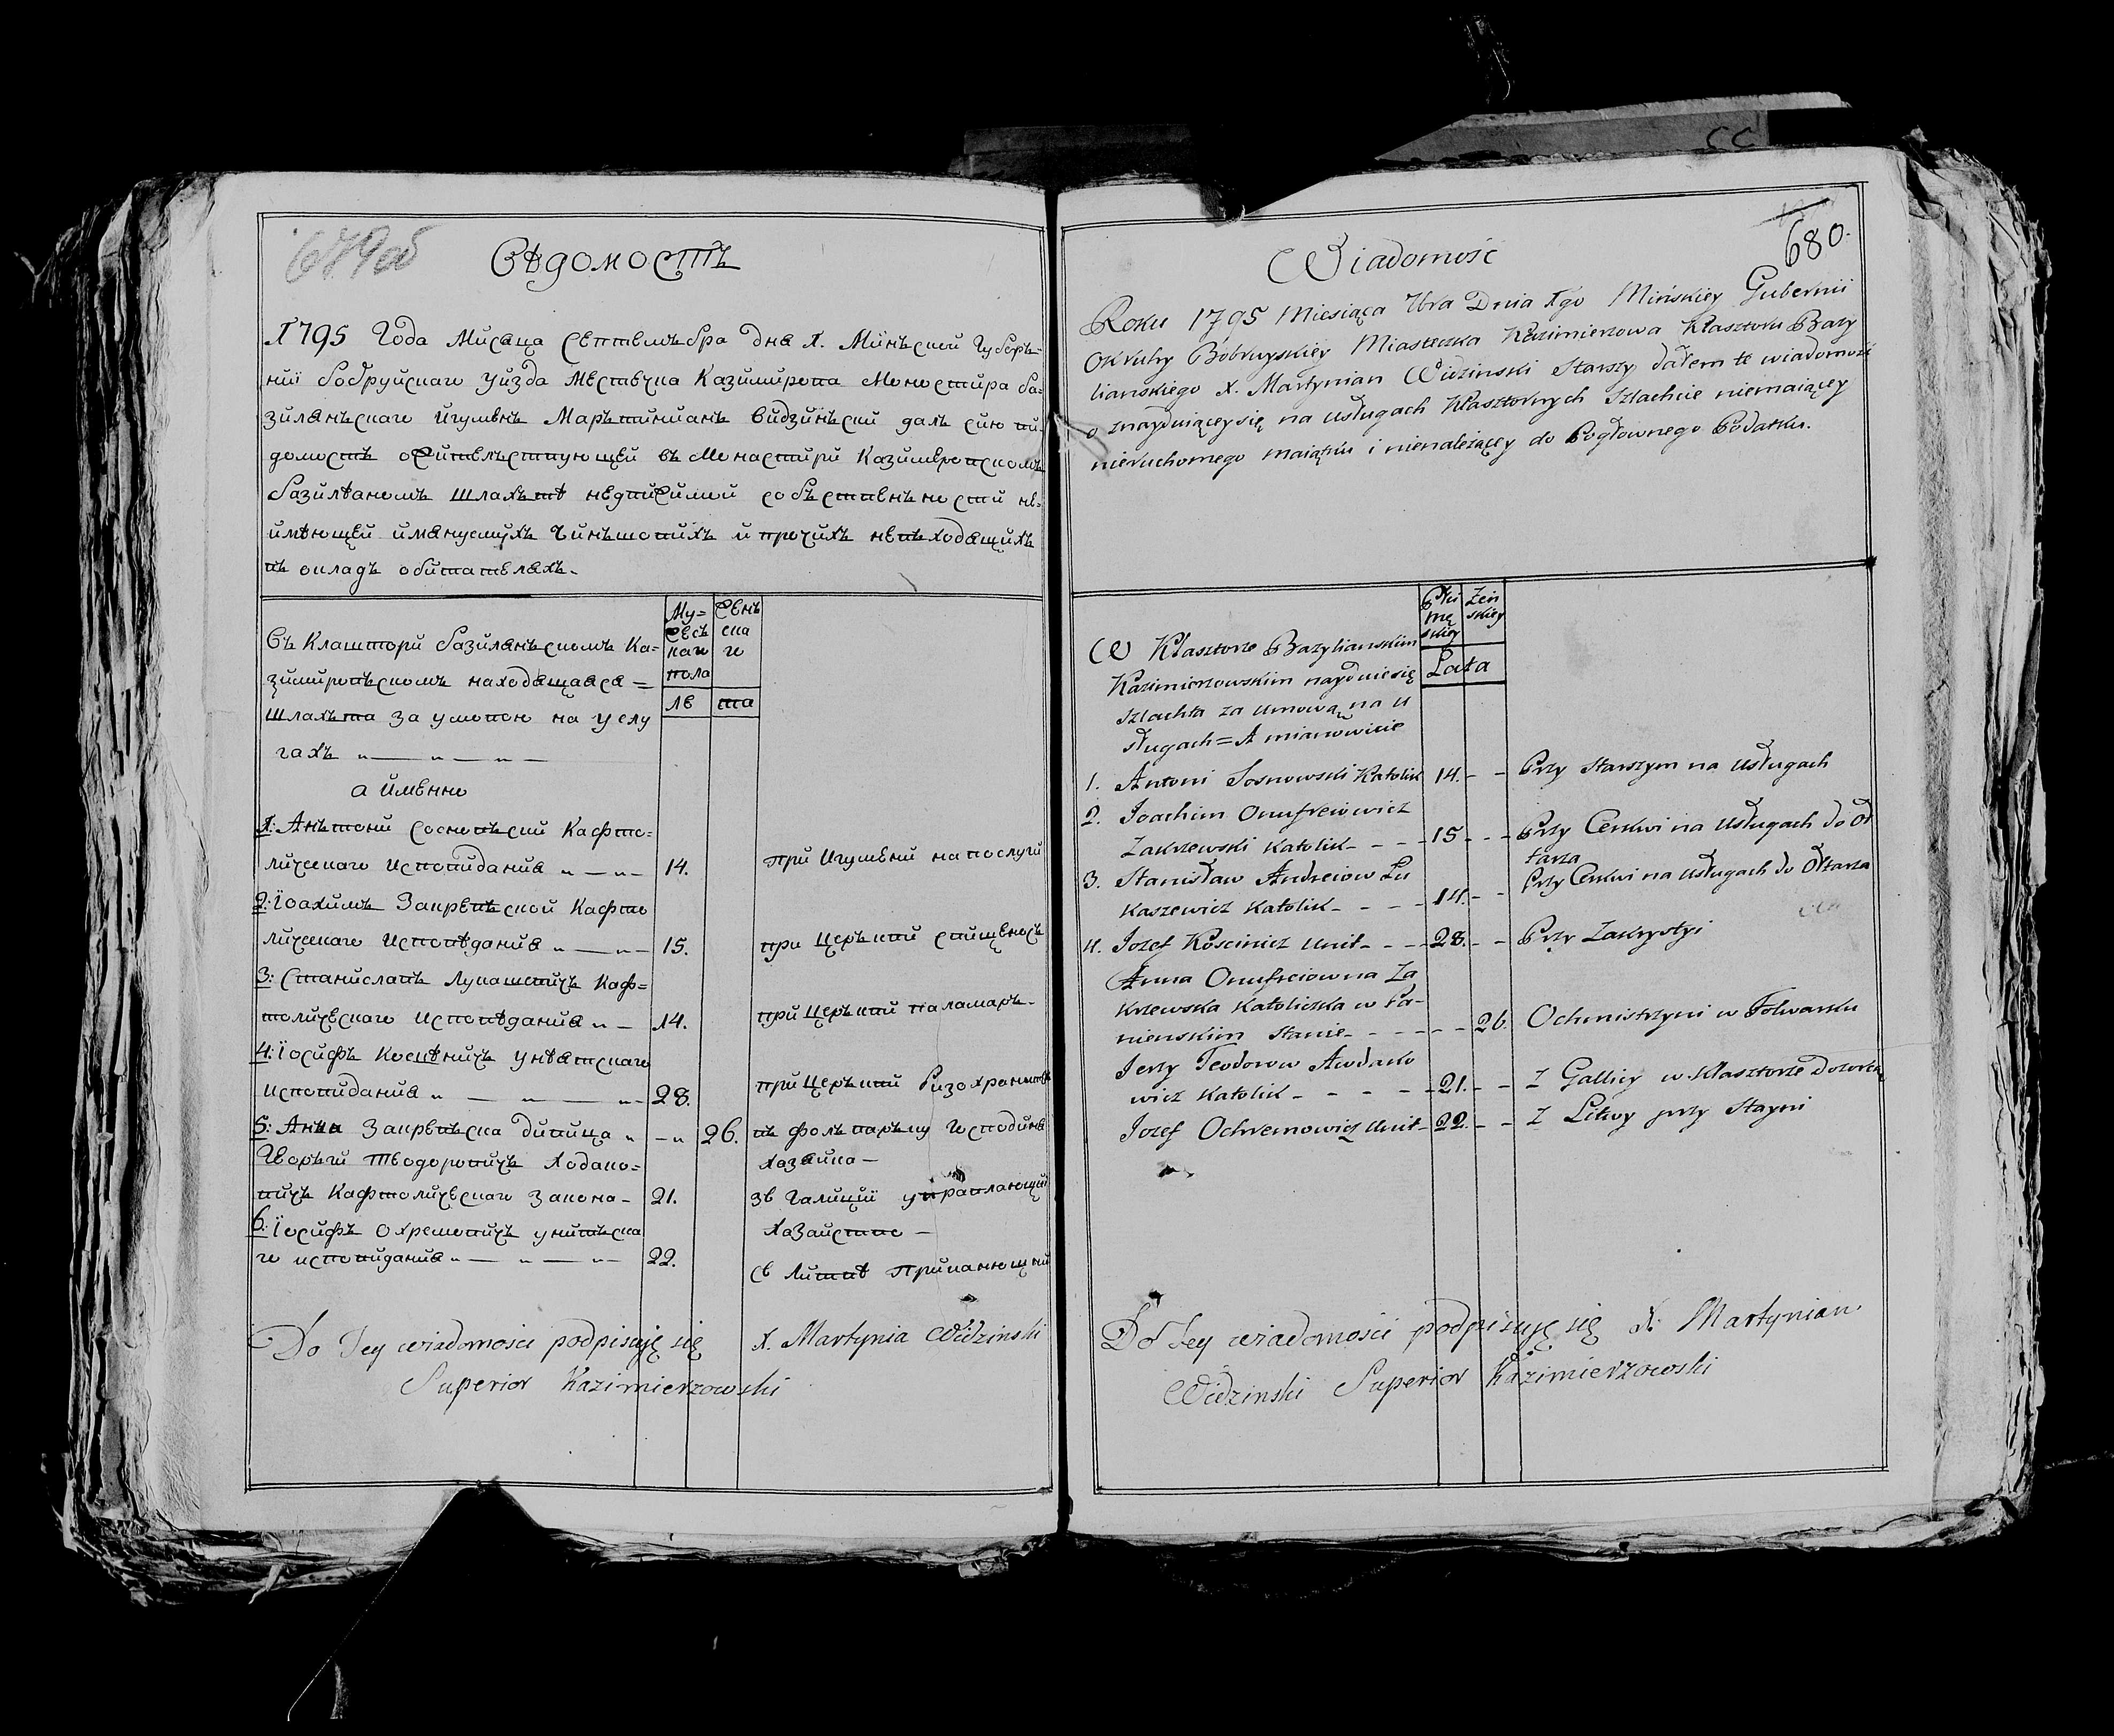 679об
Вѣдомость
1795 Года Мисяца Септемъбра дня 1. Минъской Губеръ=
нии Бобруйскаго Уизда Местечка Казимирова Моностира Ба=
зилянъскаго Игуменъ Марътинианъ Видзинъский далъ сию ви-
домость ожительствующей въ Монастири Казимеровскомъ
Базилѣаномъ шлахътѣ недвижимой собъственъности не=
имѣющей имянуемихъ Чинъшовихъ и прочихъ невъходящихъ
въ окладъ обитателяхъ.
Въ Клаштори Базилянъскомъ Ка=
зимировъскомъ находящаяся=
Шлахъта за умовою на услу
гахъ „ — „ — „ —
а именно
Му=
жесъ
каго
пола
Женъ
ска
го
ле та
1: Анътоний Сосновъский Кафто=
лическаго Исповидания „ — „ — 14. при Игумени на послуги
2: Іоахимъ Закревъской Кафто
лическаго Исповѣдания „ — „ — 15. при Церъкви
3: Станиславъ Лукашевичъ Каф=
толическаго Исповѣдания „ — 14. при Церъкви паламаръ.
4: Іосифъ Косцѣничъ унѣятскаго
исповидания „ — „ — „ — 28. при Церъкви
5: Анъна Закревъска дивица „ — „ 26. въ фольваръку Господиня
Хазяйка —
Георъгий Теодоровичъ Ходако=
вичъ Кафтолическаго Закона — 21. зе Галиции управляющий
хазайство —
6: Іосифъ Охремовичъ униятъска
го исповидания „ — „ — „ — 22. Сѣ Литвѣ
Do Tey wiadomosci podpisuję się X. Martynia Widzinski
Superior Kazimierzowski
680.
Wiadomość
Roku 1795 Miesiąca 7bra Dnia 1go Mińskiey Gubernii
Okruhy Bobruyskiey Miasteczka Kazimierzowa Klasztoru Bazy
lianskiego X. Martynian Widzinski Starszy dałem te wiadomość
o znayduiącey się na usługach Klasztornych Szlachcie niemaiącey
nieruchomego maiątku i nienależącey do Pogłownego Podatku.
W Klasztorze Bazylianskim
Kazimierzowskim nayduie się
szlachta za umową na u
sługach = A mianowicie
Płci
mę
skiey
Żeń
skiey
Lata
1. Antoni Sosnowski Katolik 14. - - Przy Starszym na Usługach
2. Joachim Onufreiowicz
Zakrzewski Katolik - - - - 15 - - - Przy Cerkwi na Usługach do Oł
tarza
3. Stanisław Andreiow Łu
kaszewicz Katolik - - - - 14. - - Przy Cerkwi na usługach do Ołtarza
4. Jozef Koscinicz Unit - - - - 28. - - Przy Zakrystyi
Anna Onufreiowna Za
krzewska Katoliczka w Pa-
nienskim stanie - - - - - - 26. Ochmistrzyni w Folwarku
Jerzy Teodorow
wicz Katolik - - - - - 21. - - Z Gallicy w Klasztorze
Jozef Ochremowicz Unit - 22. - - Z Litwy przy Stayni
Do tey wiadomosci podpisuję się X. Martynian
Widzinski Superior Kazimierzowski